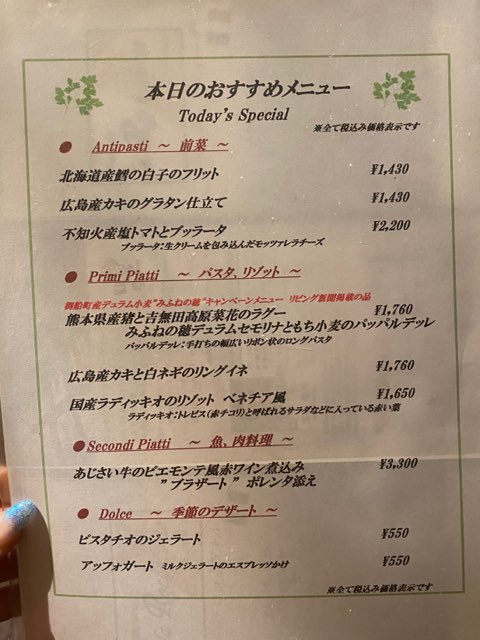 本日のおすすめメニュー
Today's Special
※全て税込み価格表示です
● Antipasti ～ 前菜 ～
北海道産鱈の白子のフリット ¥1,430
広島産カキのグラタン仕立て ¥1,430
不知火産塩トマトとブッラータ ¥2,200
ブッラータ：生クリームを包み込んだモッツァレラチーズ
● Primi Piatti ～ パスタ、リゾット ～
御船町産デュラム小麦"みふねの穂"キャンペーンメニュー リビング新聞掲載の品
熊本県産猪と吉無田高原菜花のラグー ¥1,760
みふねの穂デュラムセモリナともち小麦のパッパルデッレ
パッパルデッレ：手打ちの幅広いリボン状のロングパスタ
広島産カキと白ネギのリングイネ ¥1,760
国産ラディッキオのリゾット ベネチア風 ¥1,650
ラディッキオ：トレビス（赤チコリ）と呼ばれるサラダなどに入っている赤い葉
● Secondi Piatti ～ 魚、肉料理 ～
あじさい牛のピエモンテ風赤ワイン煮込み ¥3,300
"ブラザート" ポレンタ添え
● Dolce ～ 季節のデザート ～
ピスタチオのジェラート ¥550
アッフォガート ミルクジェラートのエスプレッソかけ ¥550
※全て税込み価格表示です